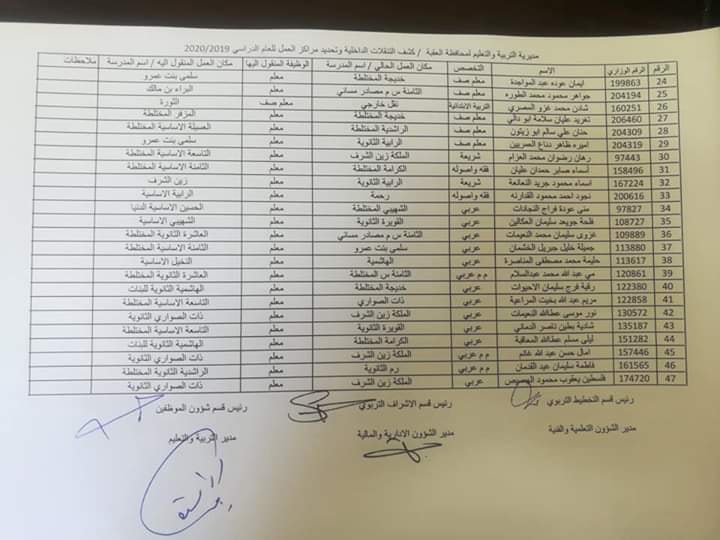 مديرية التربية والتعليم لمحافظة العقبة / كشف التنقلات الداخلية وتحديد مراكز العمل للعام الدراسي 2020/2019
الرقم الرقم الوزاري الاسم التخصص مكان العمل الحالي / اسم المدرسة الوظيفة المنقول اليها مكان العمل المنقول اليه / اسم المدرسة ملاحظات
24 199863 ايمان عوده عبد المواجدة معلم صف خديجة المختلطة معلم سلمى بنت عمرو
25 204194 جواهر محمود محمد الطوره معلم صف الثامنة س م مصادر مسائي معلم البراء بن مالك
26 160251 شادن محمد غزو المصري التربية الابتدائية نقل خارجي معلم صف الثورة
27 206460 تغريد عليان سلامة ابو دالي معلم صف خديجة المختلطة معلم المزفر المختلطة
28 204309 حنان علي سالم ابو زيتون معلم صف الراشدية المختلطة معلم الاساسية المختلطة
29 204319 اميره ظاهر دناع العمريين معلم صف الرابية الثانوية معلم سلمى بنت عمرو
30 97443 رهان رضوان محمد العزام شريعة الملكة زين الشرف معلم التاسعة الاساسية المختلطة
31 158496 أسماء صابر حمدان عليان فقه واصوله الكرامة المختلطة معلم الثامنة الاساسية المختلطة
32 167224 اسماء محمود جريد النعانعة شريعة الرابية الثانوية معلم زين الشرف
33 200616 نجود احمد محمود القدارنه فقه واصوله رحمة معلم الرابية الاساسية
34 97827 منى عودة فراج النجادات عربي الشهيبي المختلطة معلم الحسين الاساسية الدنيا
35 108727 فلحة جويعد سليمان العكالين عربي القويرة الثانوية معلم الشهيبي الاساسية
36 109889 غزوى سليمان محمد النعيمات عربي الثامنة س م مصادر مسائي معلم العاشرة الثانوية المختلطة
37 113880 جميلة خليل جبريل الخشمان عربي سلمى بنت عمرو معلم الثامنة الاساسية المختلطة
38 113617 حليمة محمد مصطفى المناصرة عربي الهاشمية معلم النخيل الاساسية
39 120861 مي عبد الله محمد عبدالسلام م م عربي الثامنة س المختلطة معلم العاشرة الثانوية المختلطة
40 122380 رقية فرج سليمان الاحيوات عربي خديجة المختلطة معلم الهاشمية الثانوية للبنات
41 122858 مريم عبد الله بخيت المراعية عربي ذات الصواري معلم التاسعة الاساسية المختلطة
42 130572 نور موسى عطالله النعيمات عربي الملكة زين الشرف معلم ذات الصواري الثانوية
43 135187 شادية بطين ناصر الدماني عربي القويرة الثانوية معلم التاسعة الاساسية المختلطة
44 151282 ليلى مسلم عطالله المحافية عربي الكرامة المختلطة معلم الهاشمية الثانوية للبنات
45 157446 امال حسن عبد الله غانم م م عربي الملكة زين الشرف معلم ذات الصواري الثانوية
46 161565 فاطمة سليمان عبد القدمان م م عربي رم الثانوية معلم الراشدية الثانوية المختلطة
47 174720 فلسطين يعقوب محمود عربي الملكة زين الشرف معلم ذات الصواري الثانوية
رئيس قسم التخطيط التربوي رئيس قسم الاشراف التربوي رئيس قسم شؤون الموظفين
مدير الشؤون التعلمية والفنية مدير الشؤون الادارية والمالية مدير التربية والتعليم